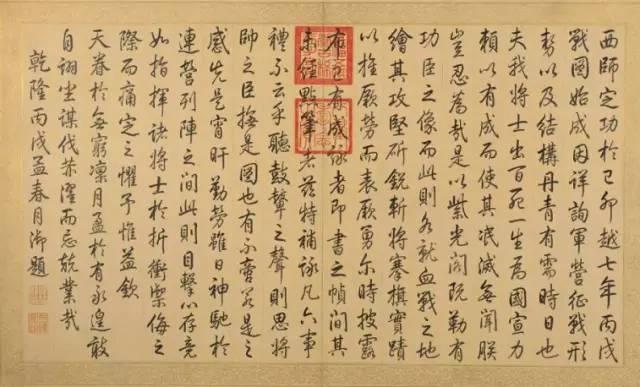 西師定功於己卯越七年丙戌
戰圖始成因詳詢軍營征戰形
勢以及結構丹青有需時日也
夫我將士出百死一生為國宣力
賴以有成而使其泯滅無聞朕
豈忍為哉是以紫光閣既勒有
功臣之像而此則各就血戰之地
繪其攻堅斫銳斬將搴旗實蹟
以推厥勞而表厥勇爾時披露
布已有成詠者即書之幀間其
未經點筆者茲特補詠凡六事
禮不云乎聽鼓鼙之聲則思將
帥之臣撫是圖也有不啻若是之
感先是宵旰勤勞雖日神馳於
連營列陣之間此則目擊心存竟
如指揮諸將士於折衝禦侮之
際而痛定之懼予惟益欽
天眷於無窮凜月盈於有永遑敢
自詡坐謀伐濯而忘兢業哉
乾隆丙戌孟春月御題